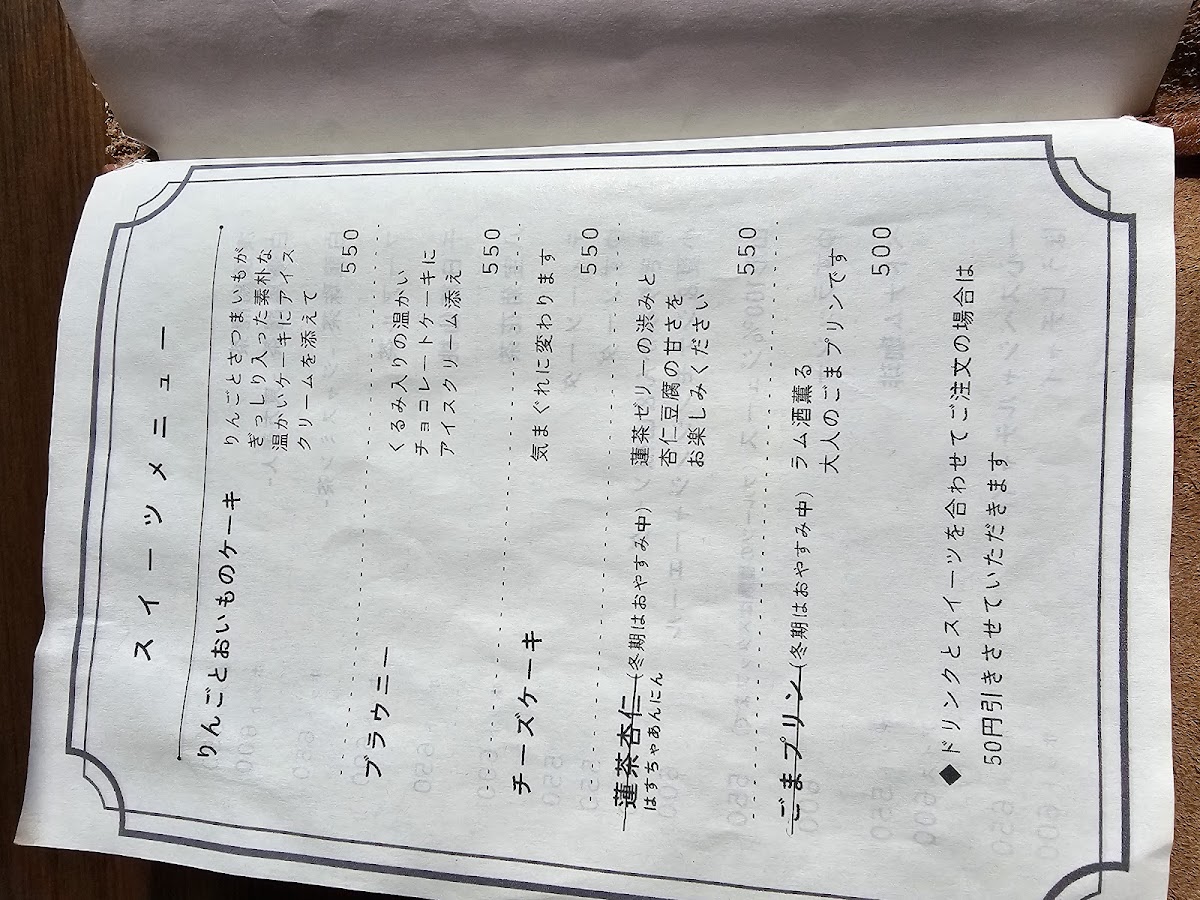 スイーツメニュー
りんごとおいものケーキ
りんごとさつまいもが
ぎっしり入った素朴な
温かいケーキにアイス
クリームを添えて
550
ブラウニー
くるみ入りの温かい
チョコレートケーキに
アイスクリーム添え
550
チーズケーキ
気まぐれに変わります
550
蓮茶杏仁(冬期はおやすみ中)
はすちゃあんにん
蓮茶ゼリーの渋みと
杏仁豆腐の甘さを
お楽しみください
550
ごまプリン(冬期はおやすみ中)
ラム酒薫る
大人のごまプリンです
500
◆ドリンクとスイーツを合わせてご注文の場合は
50円引きさせていただきます